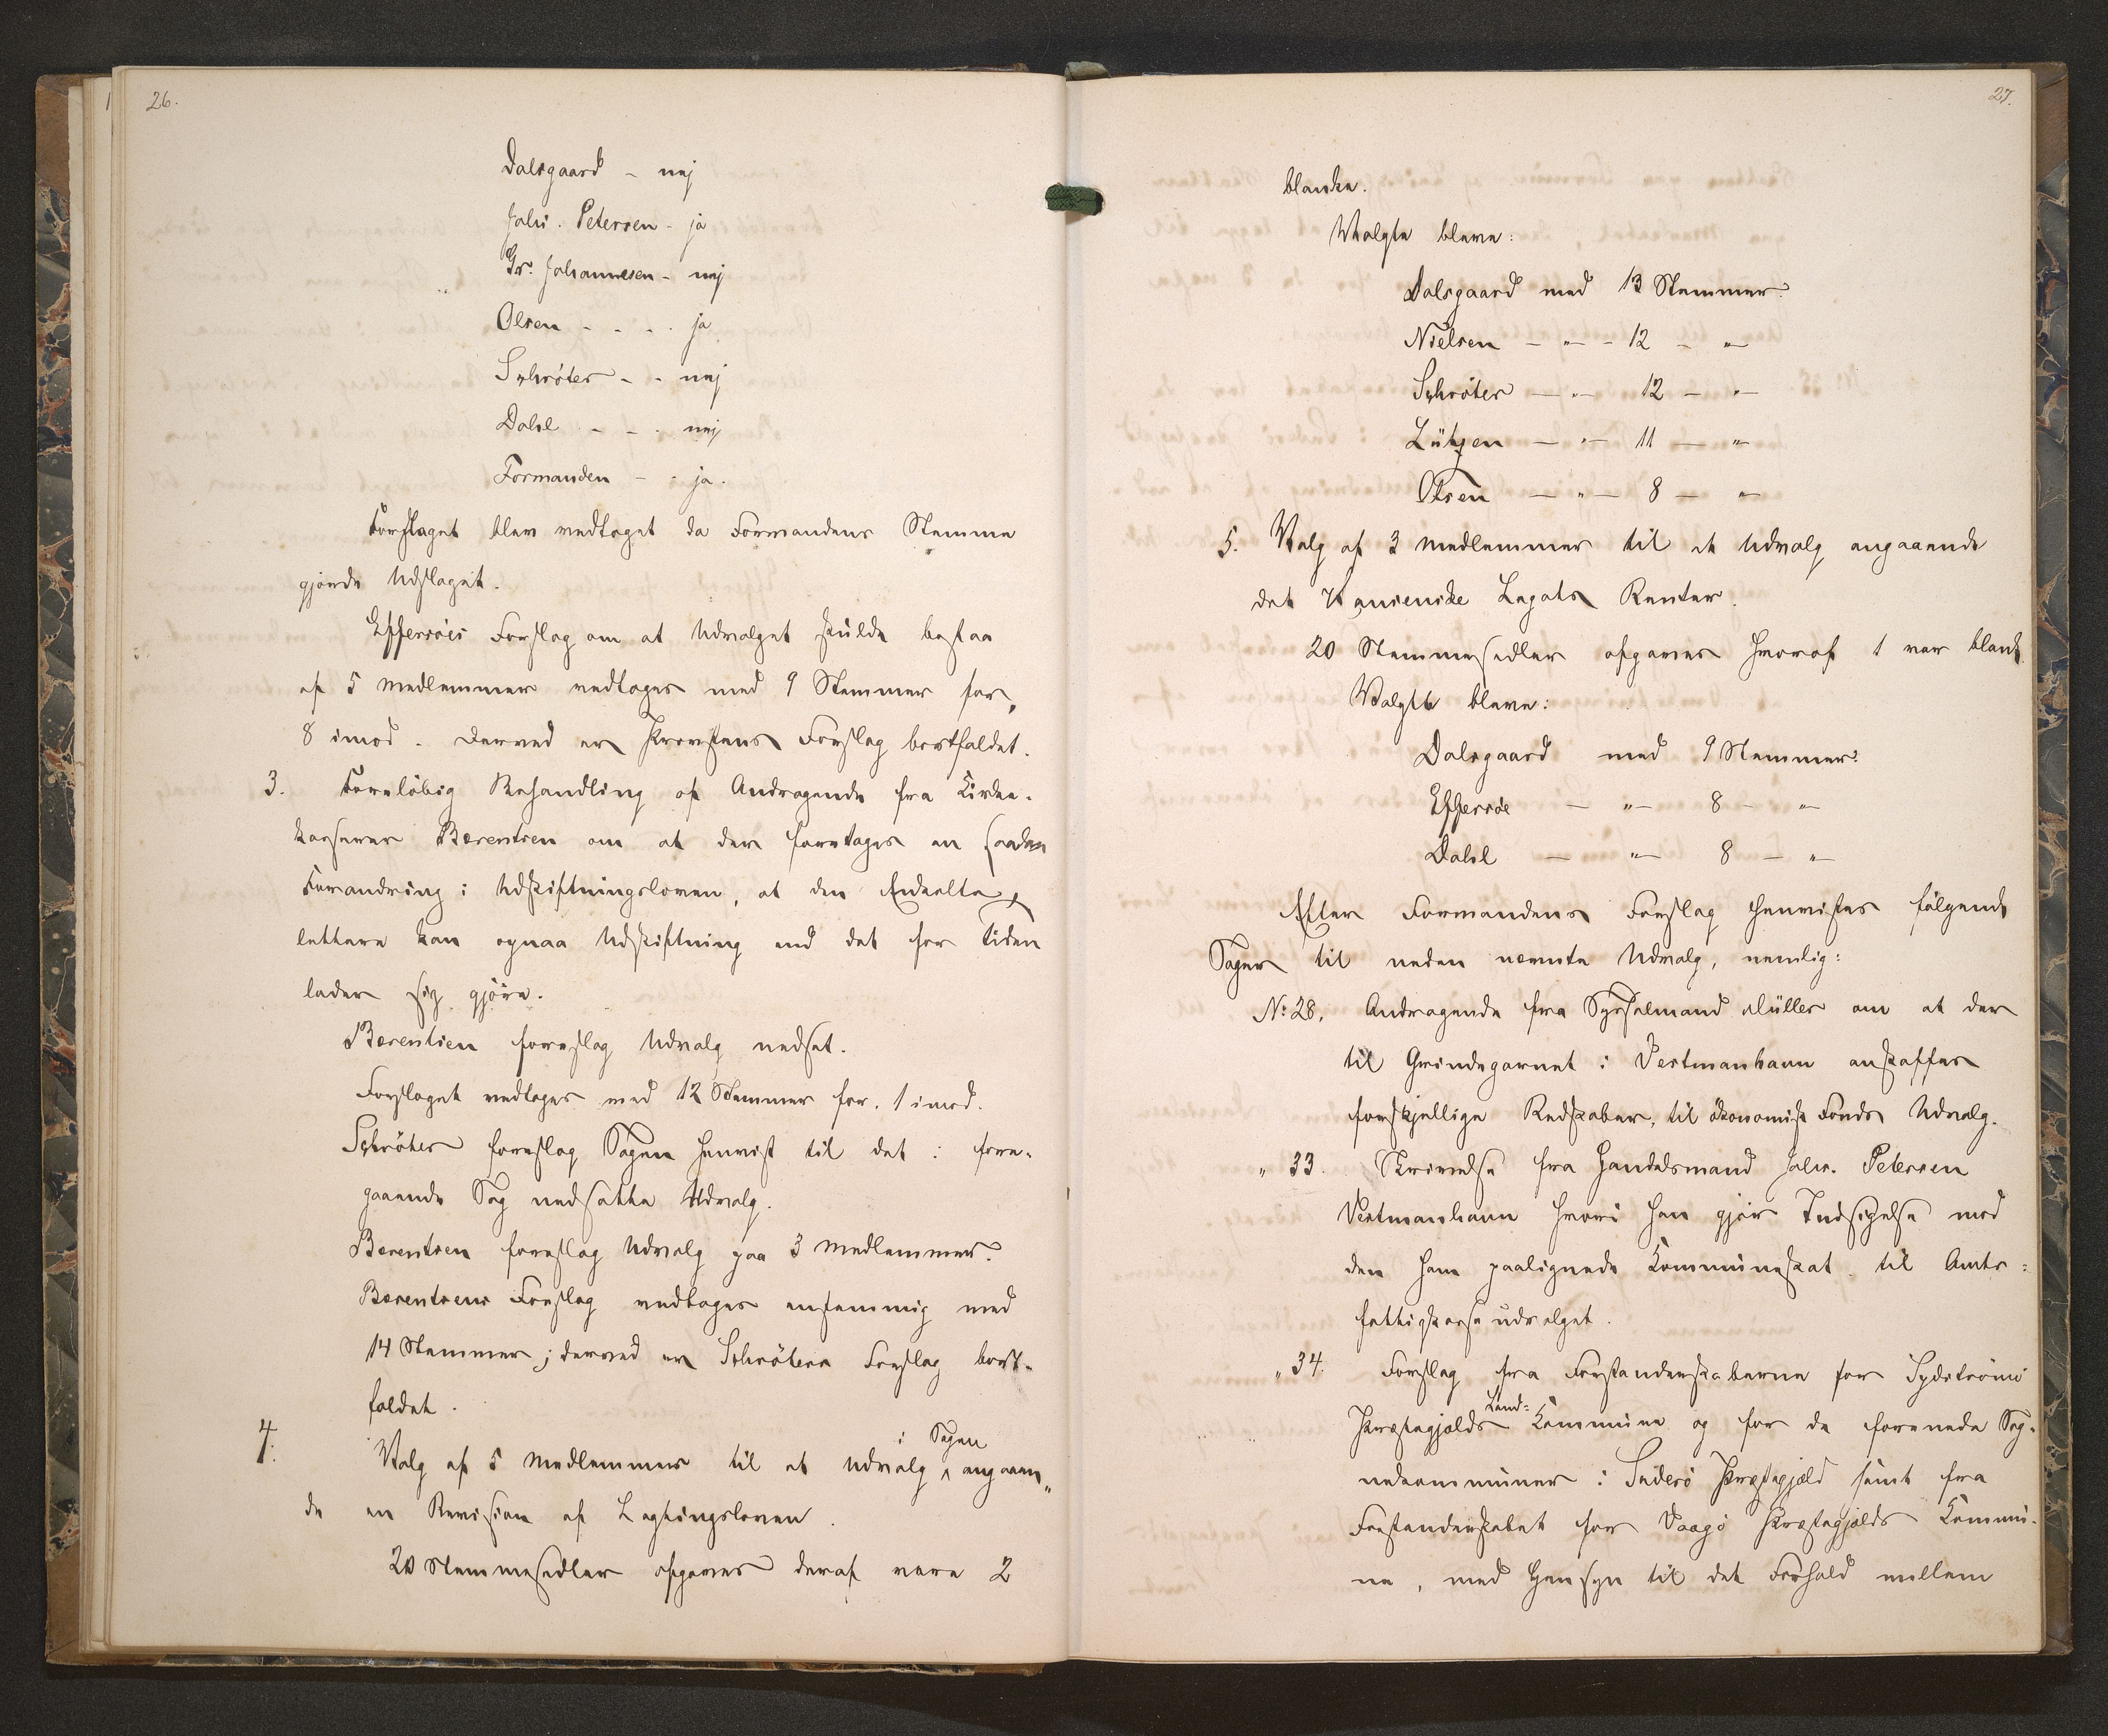 26.
Dalsgaard - nej
Johs. Petersen - ja
Gr. Johannesen - nej
Olsen - - - - ja
Schrøter - - nej
Dahl - - - nej
Formanden - - ja.
Forslaget blev vedtaget da Formandens Stemme
gjorde Udslaget.
Effersøes Forslag om at Udvalget skulde bestaa
af 5 Medlemmer vedtoges med 9 Stemmer for,
8 imod. Derved er Provstens Forslag bortfaldet.
3. Foreløbig Behandling af Andragende fra Kirke-
kasserer Bærentsen om at der foretages en saadan
Forandring i Udskiftningsloven, at den Enkelte
lettere kan opnaa Udskiftning end det for Tiden
lader sig gjöre.
Bærentsen foreslog Udvalg nedsat.
Forslaget vedtoges med 12 Stemmer for, 1 imod.
Schrøter foreslog Sagen henvist til det i fore-
gaaende Sag nedsatte Udvalg.
Bærentsen foreslog Udvalg paa 3 Medlemmer.
Bærentsens Forslag vedtoges enstemmig med
14 Stemmer; derved er Schrøters Forslag bort-
faldet.
4. Valg af 5 Medlemmer til et Udvalg i Sagen angaaen-
de en Revision af Lagtingsloven.
20 Stemmesedler afgaves deraf vare 2
27.
blanke.
Valgte bleve:
Dalsgaard med 13 Stemmer
Nielsen - " - 12 - "
Schrøter - " - 12 - "
Lützen - " - 11 - "
Olsen - " - 8 - "
5. Valg af 3 Medlemmer til et Udvalg angaaende
det Legats Renter.
20 Stemmesedler afgaves hvoraf 1 var blank.
Valgte bleve:
Dalsgaard med 9 Stemmer
Effersøe - " - 8 - "
Dahl - " - 8 - "
Efter Formandens Forslag henvistes følgende
Sager til neden nævnte Udvalg, nemlig:
No 28. Andragende fra Sysselmand Müller om at der
til Grindegarnet i Vestmanhavn anskaffes
forskjellige Redskaber, til økonomisk Fonds Udvalg.
" 33. Skrivelse fra Handelsmand Johs. Petersen
Vestmanhavn hvori han gjør Indsigelse mod
den ham paalignede Kommuneskat til Amts-
fattigkasseudvalget.
" 34. Forslag fra Forstanderskaberne for Sydstrømø
Præstegjælds Land-Kommune og for de forenede Sog-
nekommuner i Suderø Præstegjæld samt fra
Forstanderskabet for Vaagø Præstegjælds Kommu-
ne, med Hensyn til det Forhold mellem